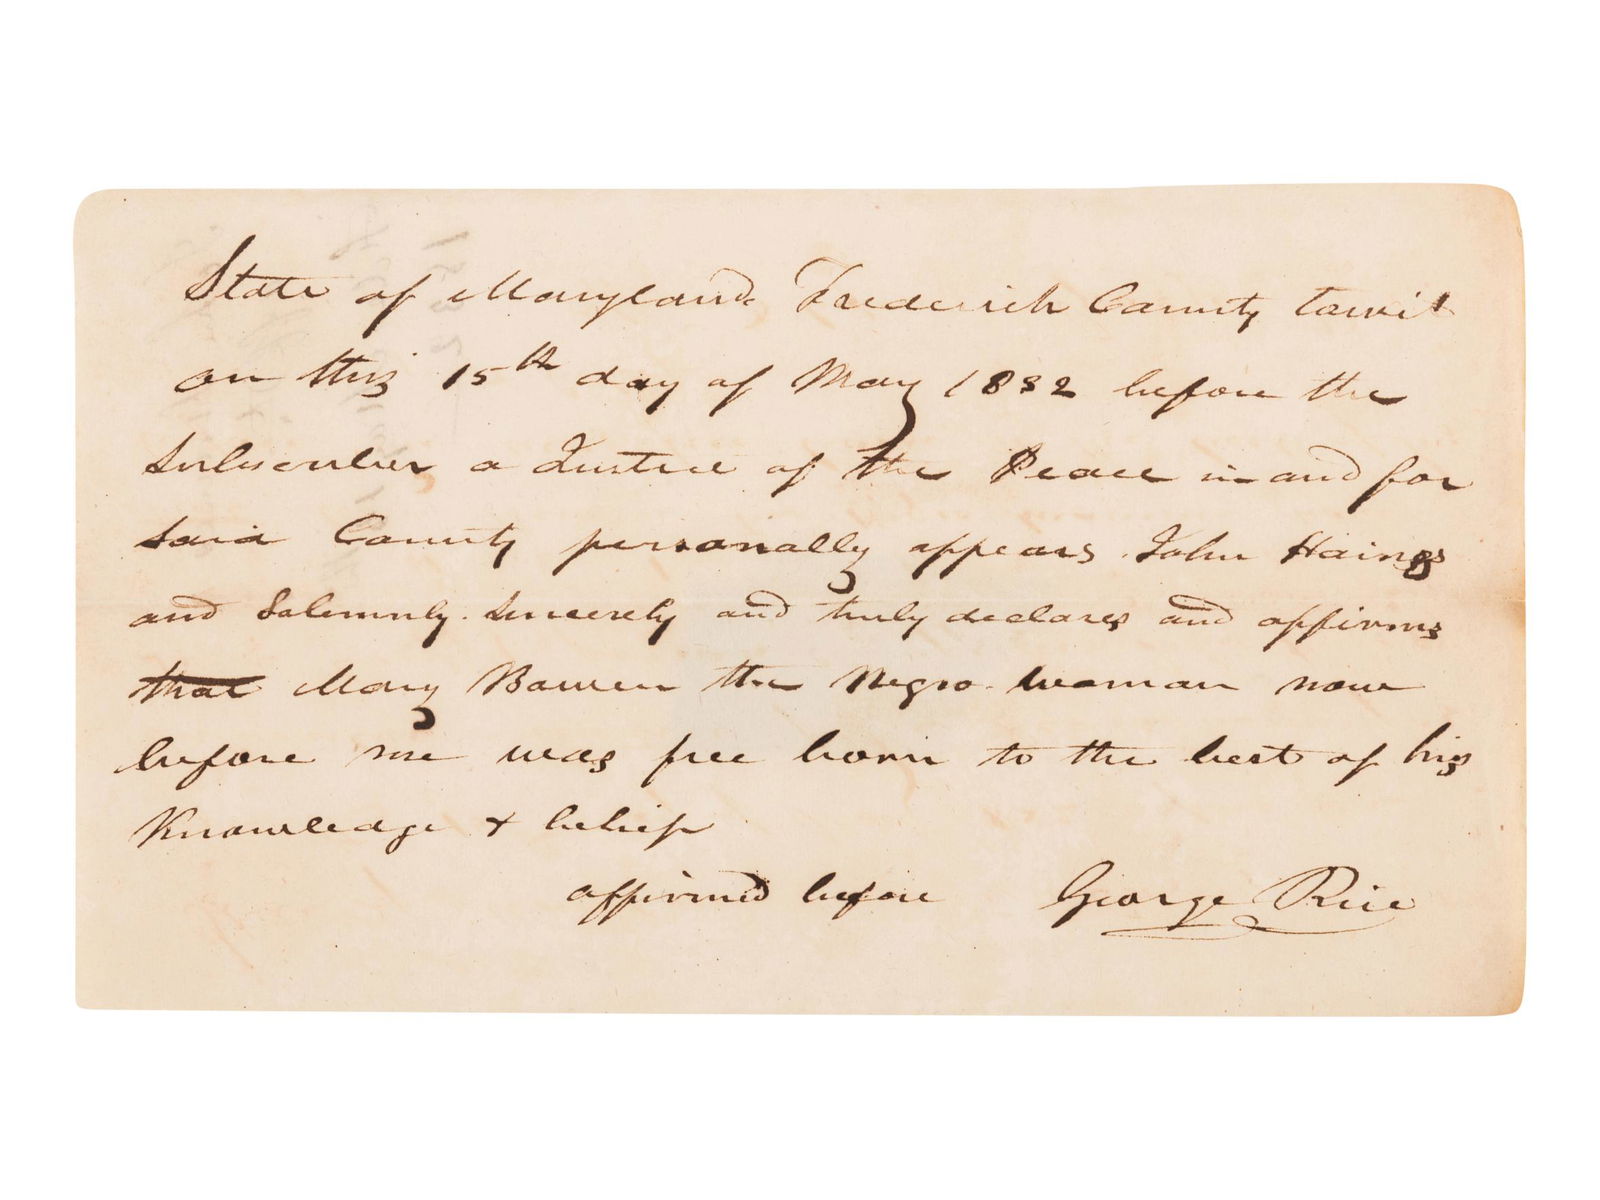 State of Maryland Frederick County towit
on this 15th day of May 1832 before the
Subscriber a Justice of the Peace in and for
said County personally appears John Haings
and Solemnly Sincerely and truly declares and affirms
that Mary Bowen the Negro woman now
before me was free born to the best of his
Knowledge & belief
affirmed before George Rice